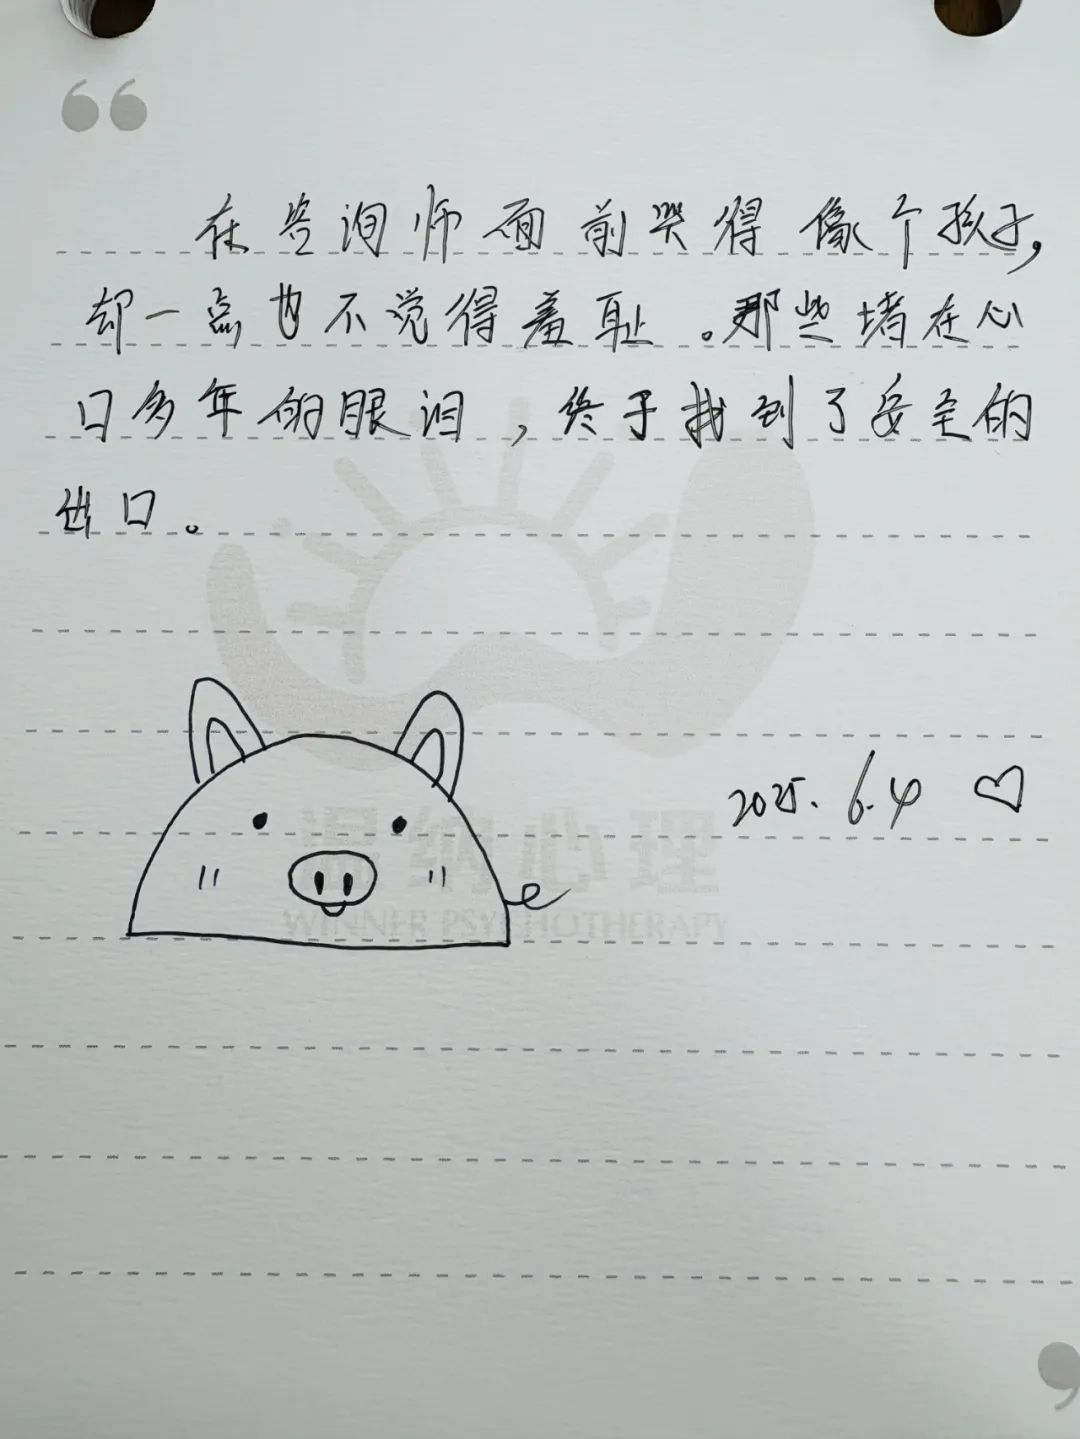 在咨询师面前哭得像个孩子，
却一点也不觉得羞耻。那些堵在心
口多年的眼泪，终于找到了安全的
出口。
2025.6.4
温纳心理
WINNER PSYCHOTHERAPY